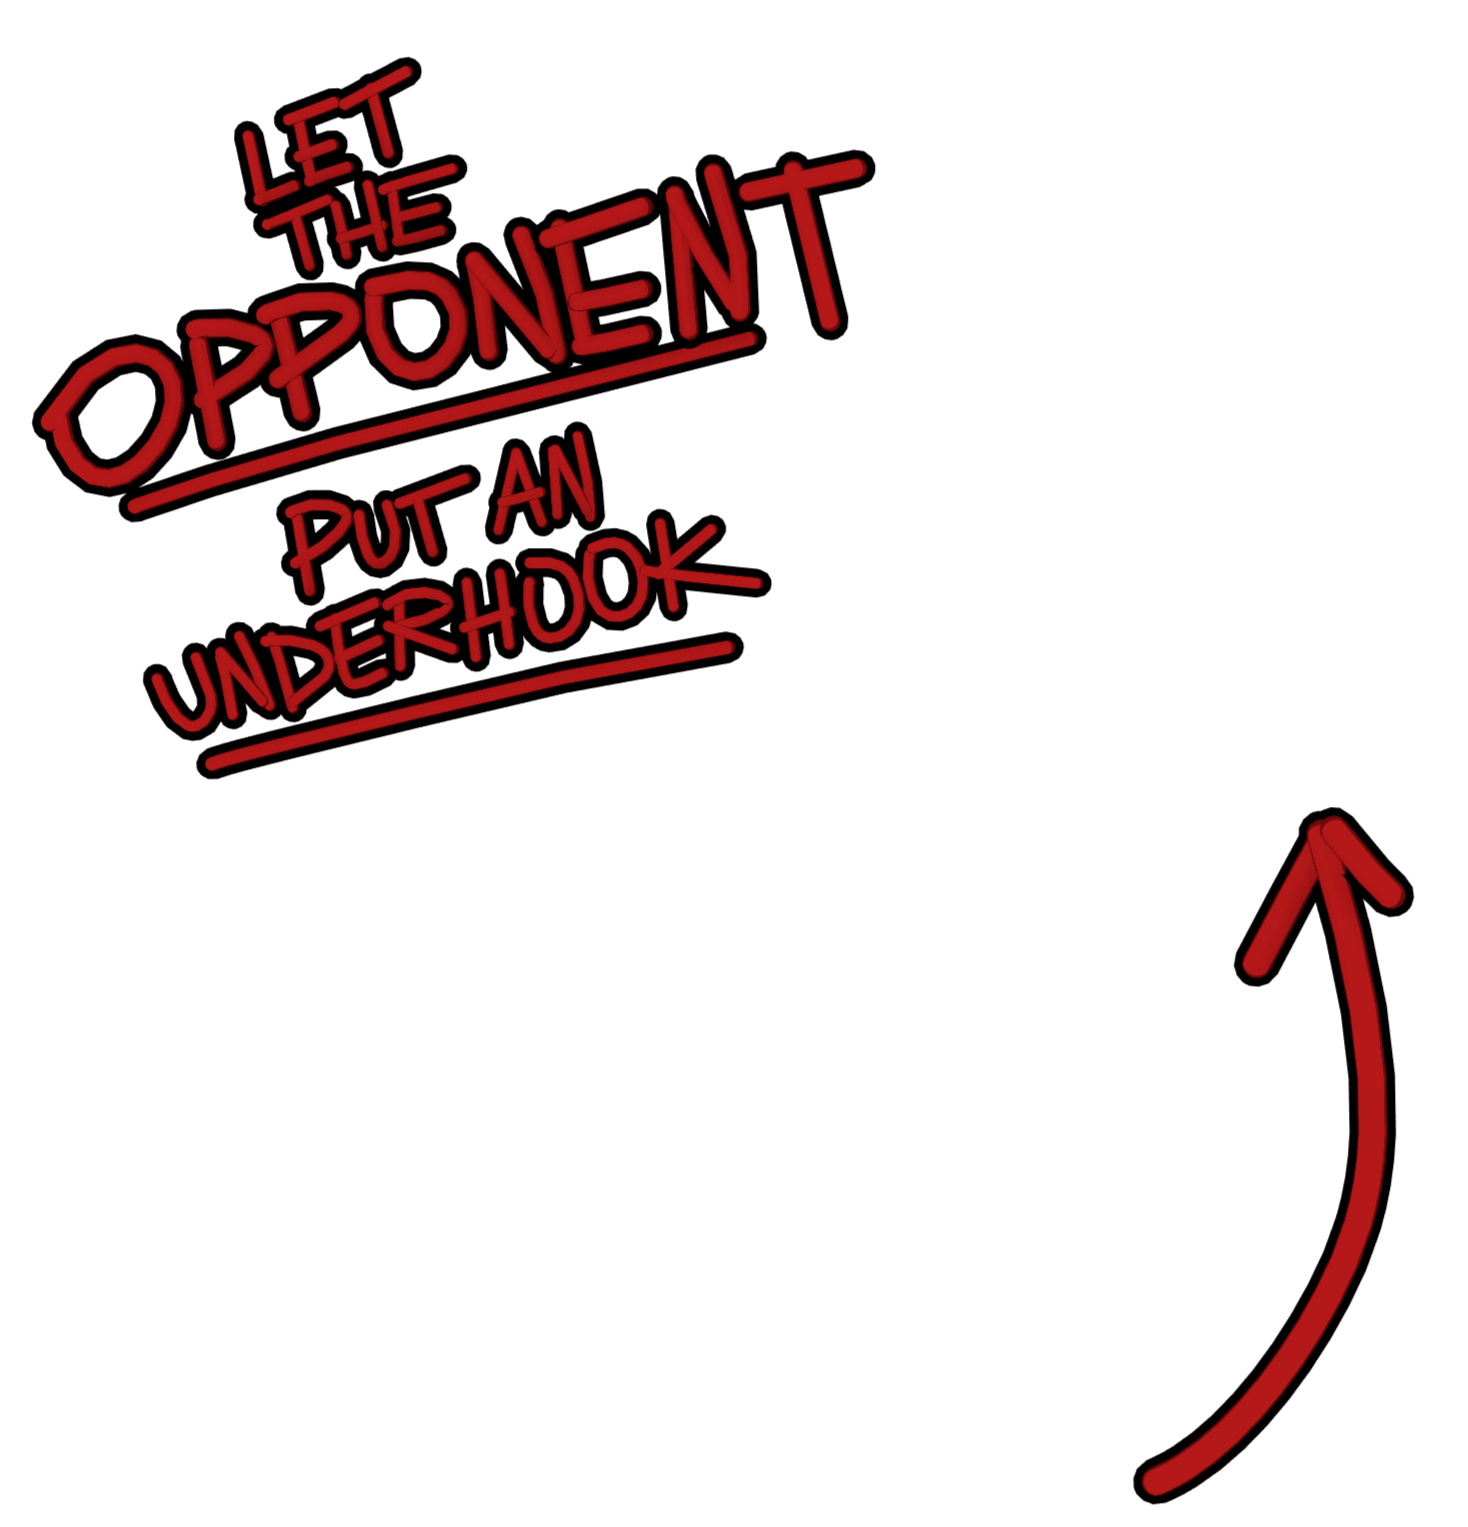 LET
THE
OPPONENT
PUT AN
UNDERHOOK